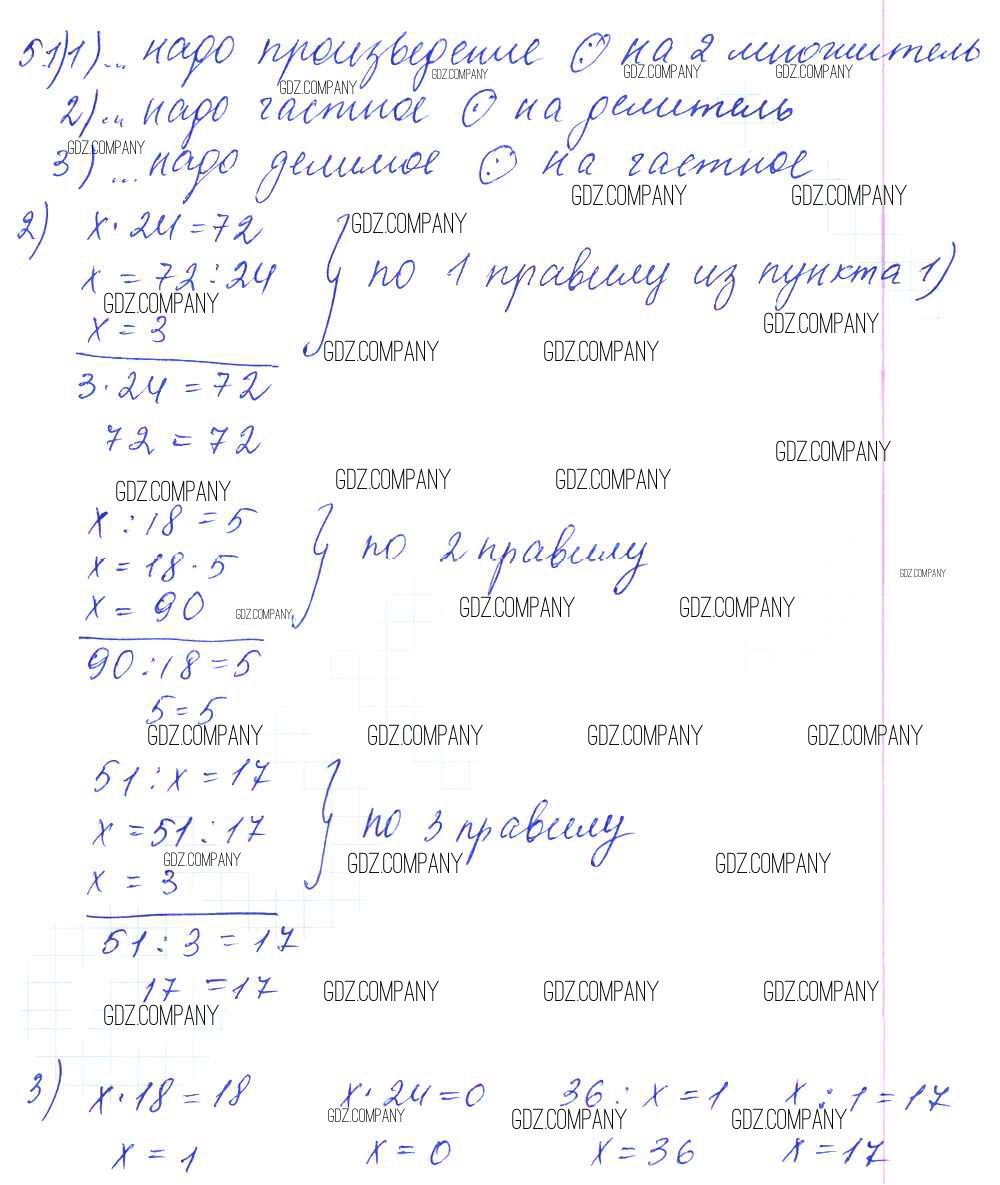 51) 1) ... надо произведение (:) на 2 множитель
GDZ.COMPANY GDZ.COMPANY GDZ.COMPANY GDZ.COMPANY
2) ... надо частное (·) на делитель
GDZ.COMPANY
3) ... надо делимое (:) на частное
GDZ.COMPANY GDZ.COMPANY
2) x · 24 = 72 GDZ.COMPANY
x = 72 : 24 по 1 правилу из пункта 1)
GDZ.COMPANY
x = 3 GDZ.COMPANY
GDZ.COMPANY GDZ.COMPANY
3 · 24 = 72
72 = 72
GDZ.COMPANY
GDZ.COMPANY GDZ.COMPANY GDZ.COMPANY
x : 18 = 5
x = 18 · 5 по 2 правилу
GDZ.COMPANY
x = 90 GDZ.COMPANY GDZ.COMPANY GDZ.COMPANY
90 : 18 = 5
5 = 5
GDZ.COMPANY GDZ.COMPANY GDZ.COMPANY GDZ.COMPANY
51 : x = 17
x = 51 : 17 по 3 правилу
GDZ.COMPANY GDZ.COMPANY GDZ.COMPANY
x = 3
51 : 3 = 17
17 = 17 GDZ.COMPANY GDZ.COMPANY GDZ.COMPANY
GDZ.COMPANY
3) x · 18 = 18 x · 24 = 0 36 : x = 1 x : 1 = 17
GDZ.COMPANY GDZ.COMPANY GDZ.COMPANY
x = 1 x = 0 x = 36 x = 17